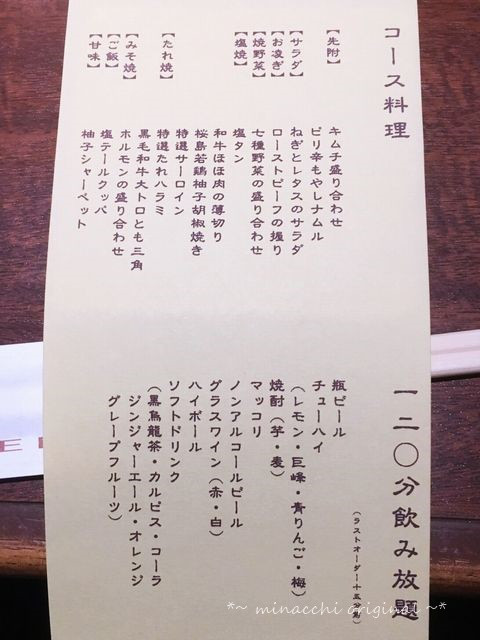 コース料理
【先附】
キムチ盛り合わせ
ピリ辛もやしナムル
【サラダ】
ねぎとレタスのサラダ
【お凌ぎ】
ローストビーフの握り
【焼野菜】
七種野菜の盛り合わせ
【塩焼】
塩タン
和牛ほほ肉の薄切り
桜島若鶏柚子胡椒焼き
特選サーロイン
【たれ焼】
特選たれハラミ
黒毛和牛大トロとも三角
【みそ焼】
ホルモンの盛り合わせ
【ご飯】
塩テールクッパ
【甘味】
柚子シャーベット
一二〇分飲み放題
(ラストオーダー十五分前)
瓶ビール
チューハイ
(レモン・巨峰・青りんご・梅)
焼酎(芋・麦)
マッコリ
ノンアルコールビール
グラスワイン(赤・白)
ハイボール
ソフトドリンク
(黒烏龍茶・カルピス・コーラ
ジンジャーエール・オレンジ
グレープフルーツ)
*~ minacchi original ~*